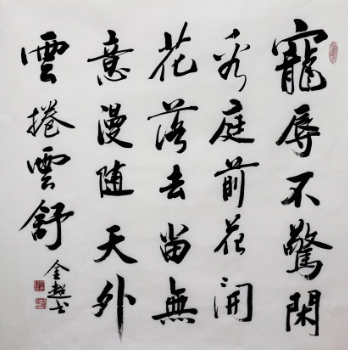 寵辱不驚閑
看庭前花開
花落去留無
意漫随天外
雲捲雲舒
金超书